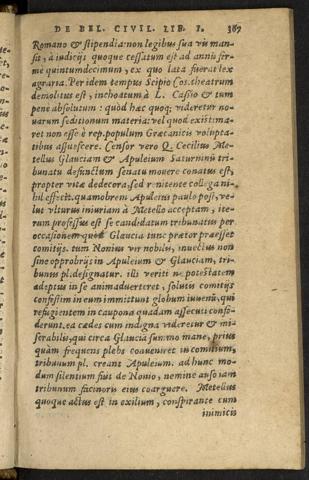 DE BEL. CIVIL. LIB. I. 387
Romano & stipendia: non legibus sua vis man-
sit, à iudicijs quoque cessatum est ad annis fer-
mè quintumdecimum, ex quo lata fuerat lex
agraria. Per idem tempus Scipio Cos. theatrum
demolitus est, inchoatum à L. Cassio & tum
penè absolutum: quòd hæc quoq; videretur no-
uarum seditionum materia: vel quod existima-
ret non esse è rep. populum Græcanicis volupta-
tibus assuescere. Censor vero Q. Cecilius Me-
tellus Glauciam & Apuleium Saturninū tri-
bunatu defunctum senatu mouere conatus est,
propter vitæ dedecora, sed renitente collega ni-
hil effecit. quamobrem Apuleius paulo post, ve-
lut vlturus iniuriam à Metello acceptam, ite-
rum professus est se candidatum tribunatus per
occasionem quod Glaucia tunc prætor præesset
comitijs. tum Nonius vir nobilis, inuectus non
sine opprobrijs in Apuleium & Glauciam, tri-
bunus pl. designatur. illi veriti ne potestatem
adeptus in se animaduerteret, solutis comitijs
confestim in eum immittunt globum iuuenū, qui
refugientem in caupona quadam assecuti confo-
derunt. ea cædes cum indigna videretur & mi-
serabilis, qui circa Glauciā summo mane, prius
quàm frequens plebs conueniret in comitium,
tribunum pl. creant Apuleium. ad hunc mo-
dum silentium fuit de Nonio, nemine auso iam
tribunum facinoris eius coarguere. Metellus
quoque actus est in exilium, conspirante cum
inimicis